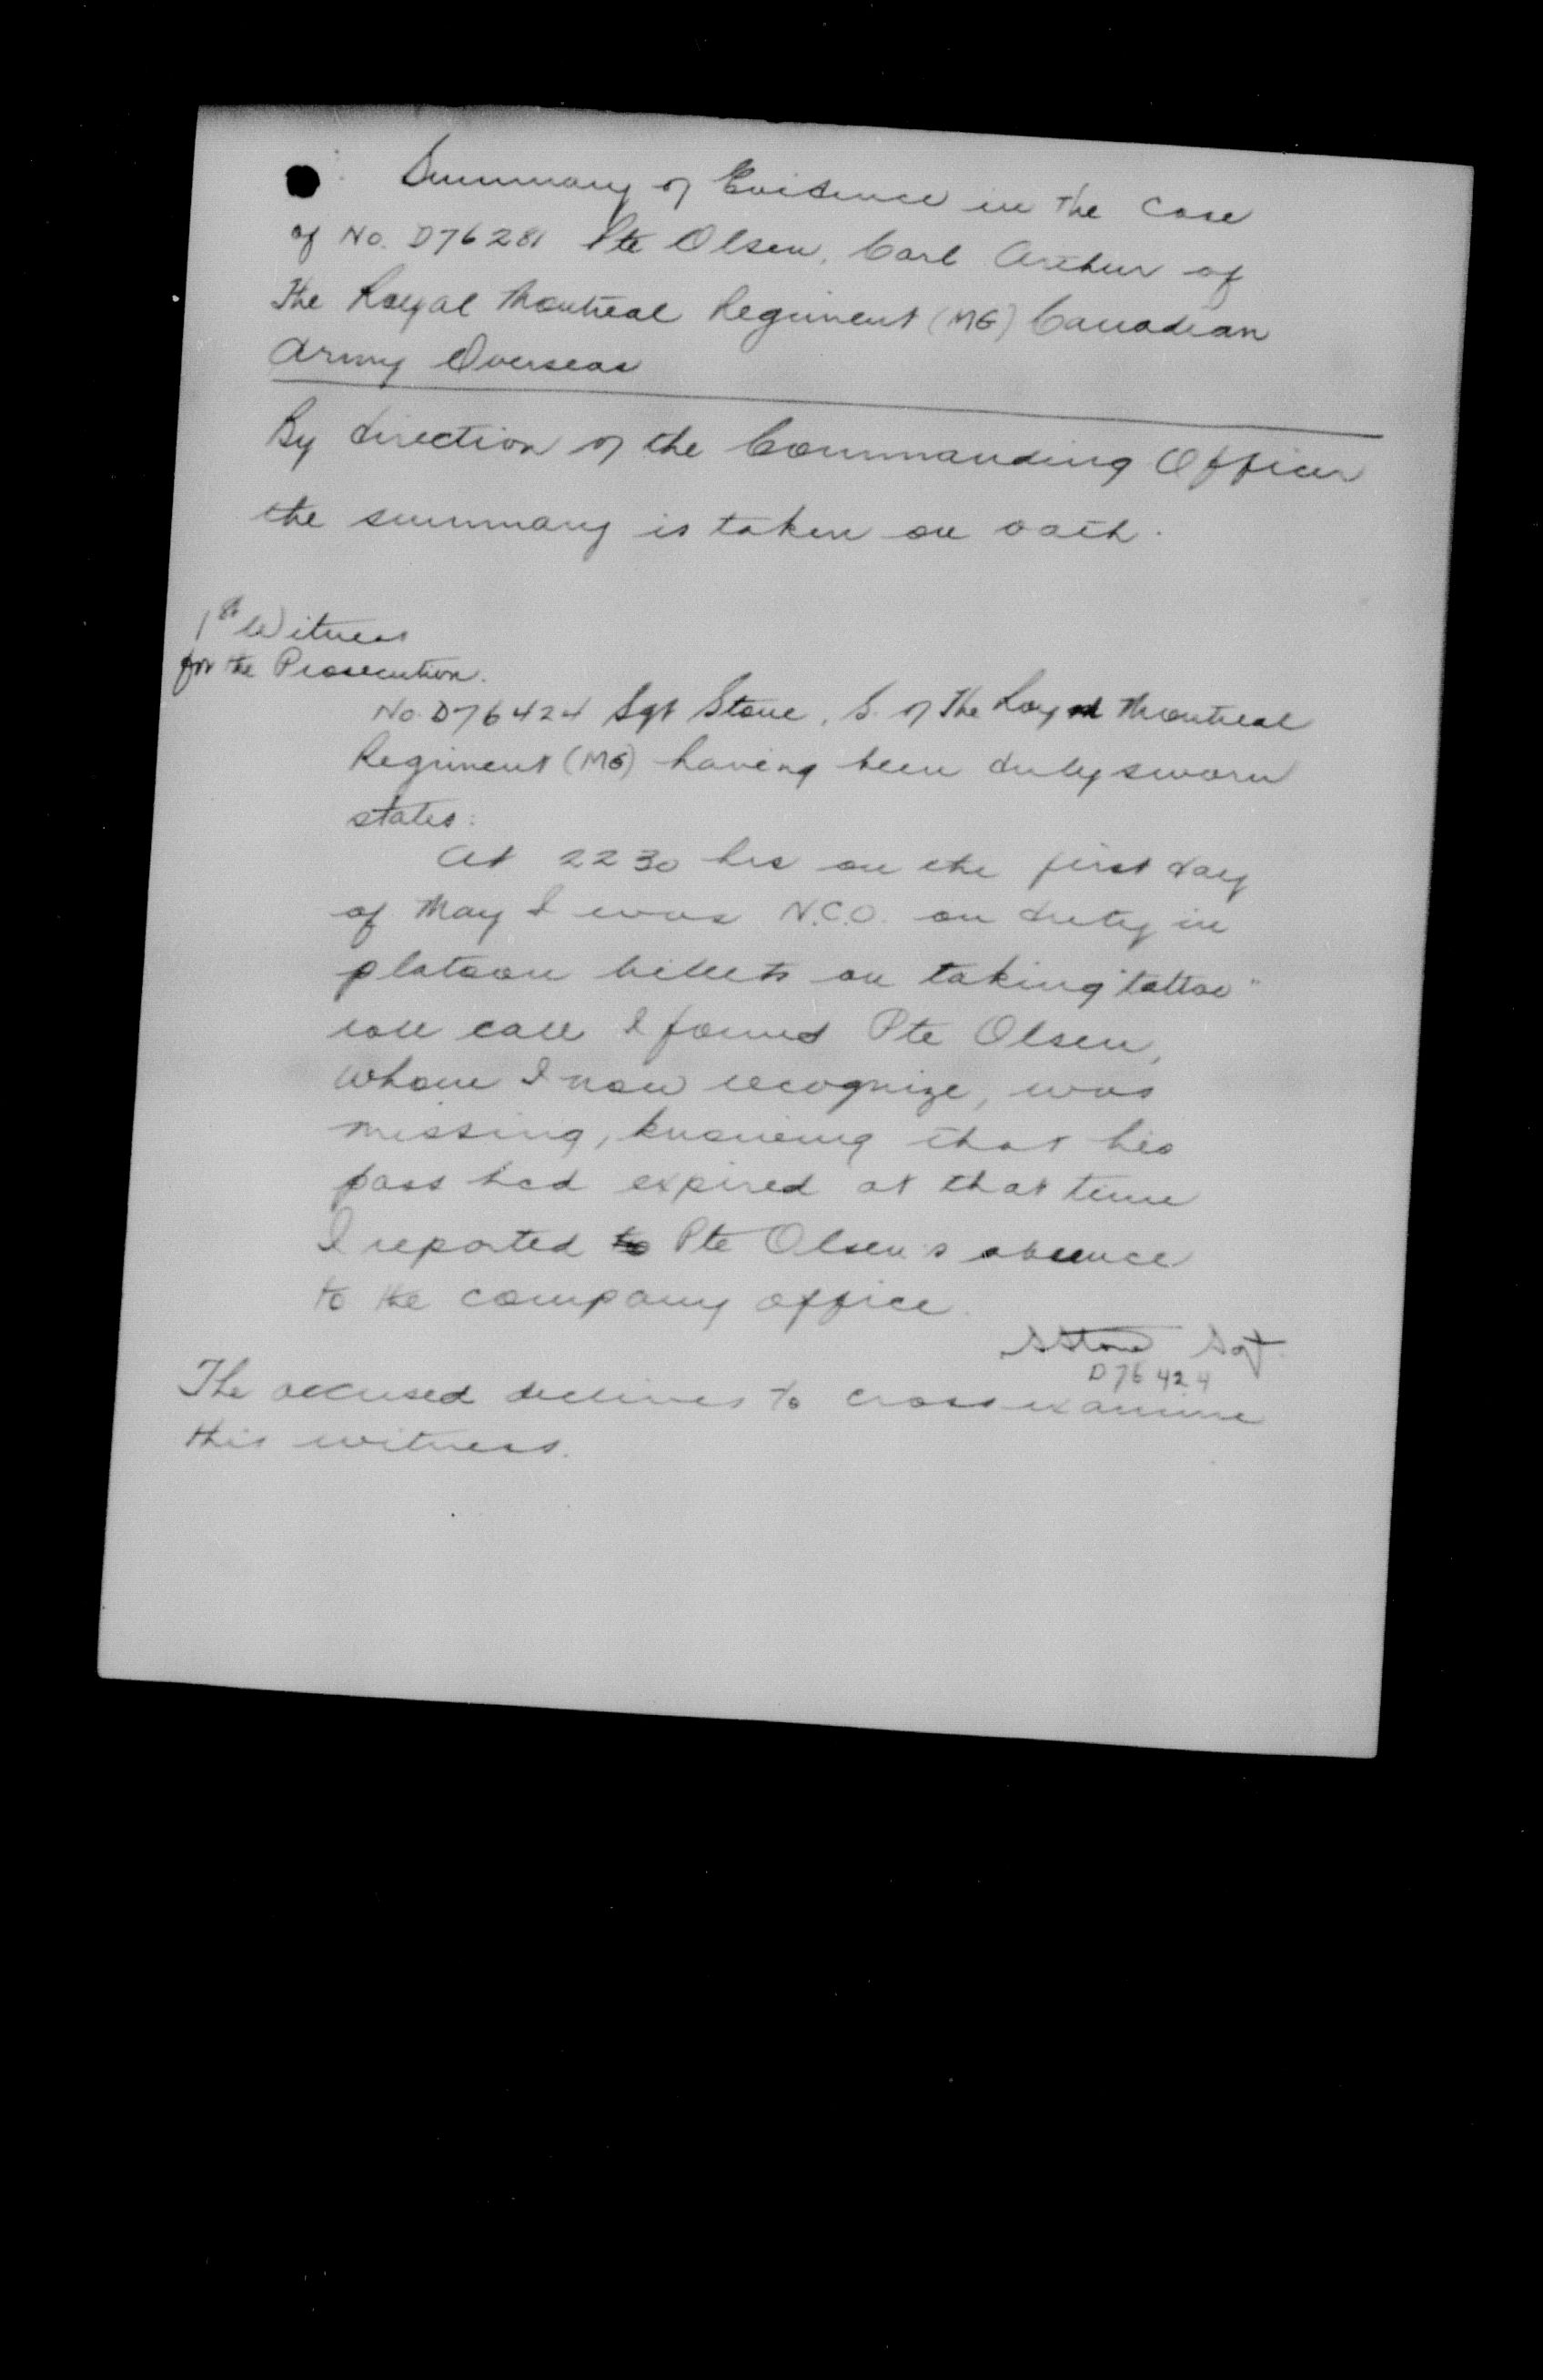 Summary of Evidence in the Case
of No. D76281 Pte Olsen, Carl Arthur of
The Royal Montreal Regiment (MG) Canadian
Army Overseas
By direction of the Commanding Officer
the summary is taken on oath.
1st Witness
for the Prosecution.
No. D76424 Sgt Stone, S. of The Royal Montreal
Regiment (MG) having been duly sworn
states:
At 2230 hrs on the first day
of May I was N.C.O. on duty in
platoon billets on taking "tattoo"
roll call I found Pte Olsen,
whom I now recognize, was
missing, knowing that his
pass had expired at that time
I reported to Pte Olsen's absence
to the company office.
S Stone Sgt.
D76424
The accused declines to cross examine
this witness.